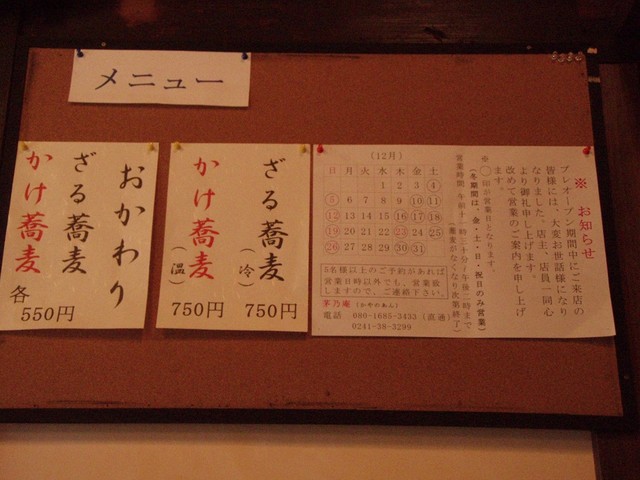 メニュー
おかわり
ざる蕎麦
かけ蕎麦
各
550円
ざる蕎麦
(冷)
750円
かけ蕎麦
(温)
750円
※ お知らせ
プレオープン期間中にご来店の
皆様には、大変お世話様になり
なりました。店主、店員一同心
より御礼申し上げます。
改めて営業のご案内を申し上げ
ます。
※○印が営業日となります。
(冬期間は、金・土・日・祝日のみ営業)
営業時間 午前十一時三十分〜午後二時まで
(蕎麦がなくなり次第終了)
(12月)
日 月 火 水 木 金 土
1 2 3 4
5 6 7 8 9 10 11
12 13 14 15 16 17 18
19 20 21 22 23 24 25
26 27 28 29 30 31
5名様以上のご予約があれば
営業日時以外でも、営業致
しますので、ご連絡下さい。
茅乃庵 (かやのあん)
電話 080-1685-3433 (直通)
0241-38-3299